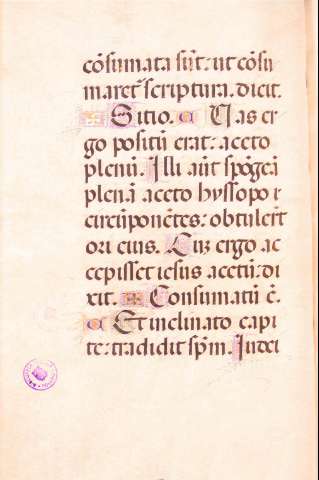 cõsumata sũt: ut cõsu
maret̃ scriptura. dicit.
Sitio. Uas er
go positũ erat: aceto
plenũ. Illi aũt spõgeã
plenã aceto hyssopo r
circũponẽtes: obtulerũt
ori eius. Cuʒ ergo ac
cepisset iesus acetũ: di
xit. Consumatũ ẽ.
Et inclinato capi
te: tradidit sp̃m. Iudei